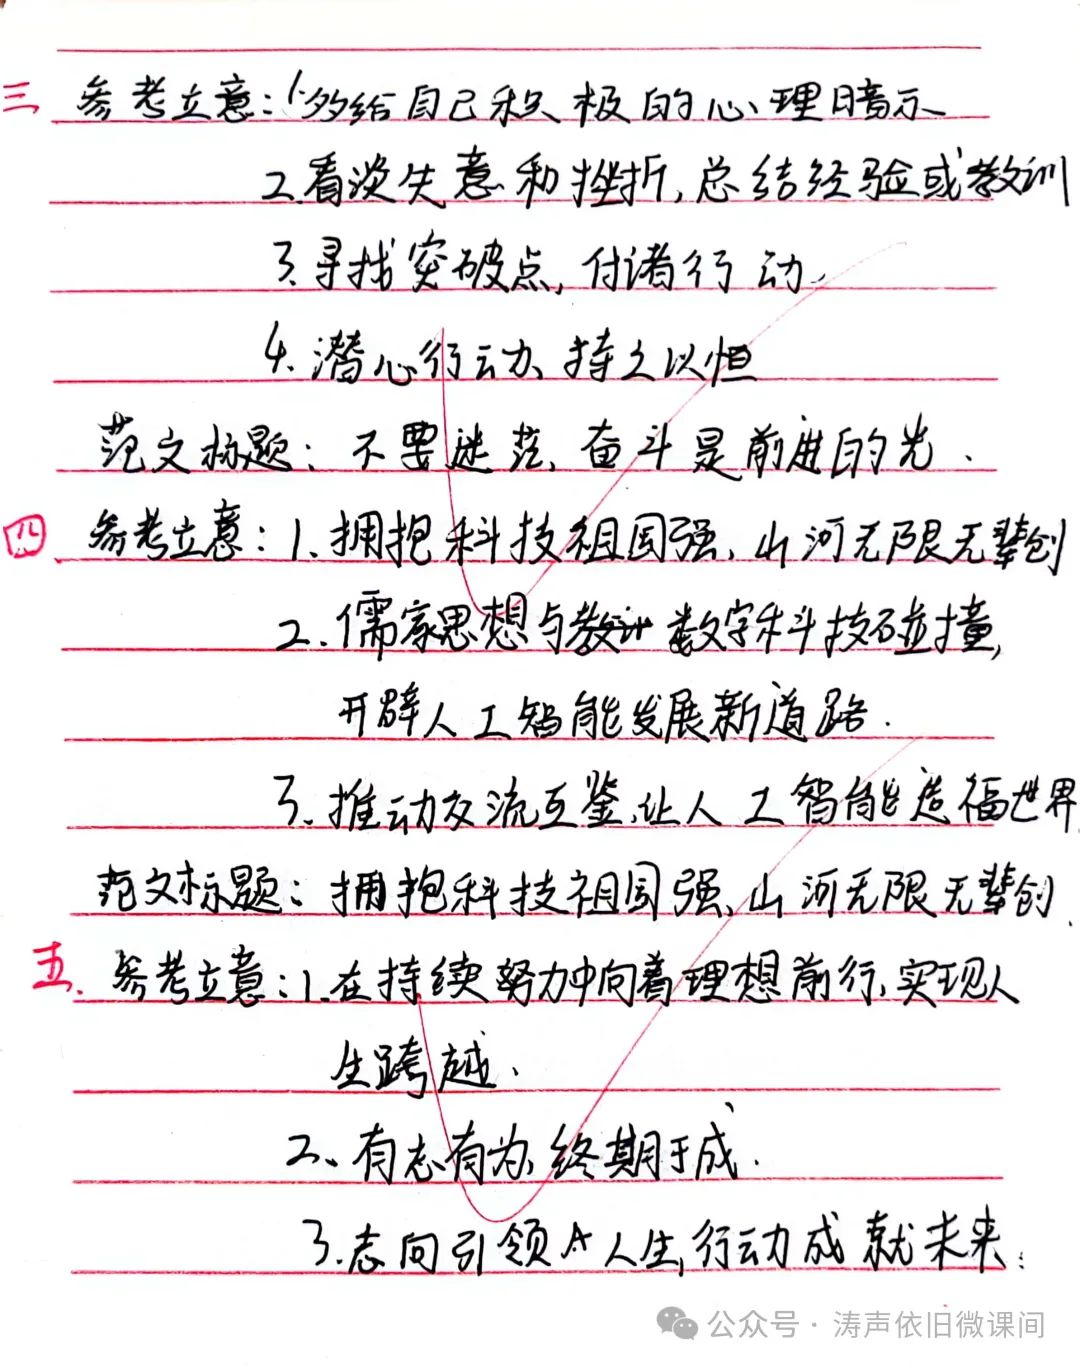 三 参考立意:1.多给自己积极的心理暗示
2.看淡失意和挫折,总结经验或教训
3.寻找突破点,付诸行动.
4.潜心行动、持之以恒
范文标题:不要迷茫,奋斗是前进的光.
四 参考立意:1.拥抱科技祖国强,山河无限无辈创
2.儒家思想与数字科技碰撞,
开辟人工智能发展新道路.
3.推动交流互鉴,让人工智能造福世界.
范文标题:拥抱科技祖国强,山河无限无辈创.
五. 参考立意:1.在持续努力中向着理想前行,实现人
生跨越.
2、有志有为,终期于成.
3.志向引领人生,行动成就未来.
公众号·涛声依旧微课间